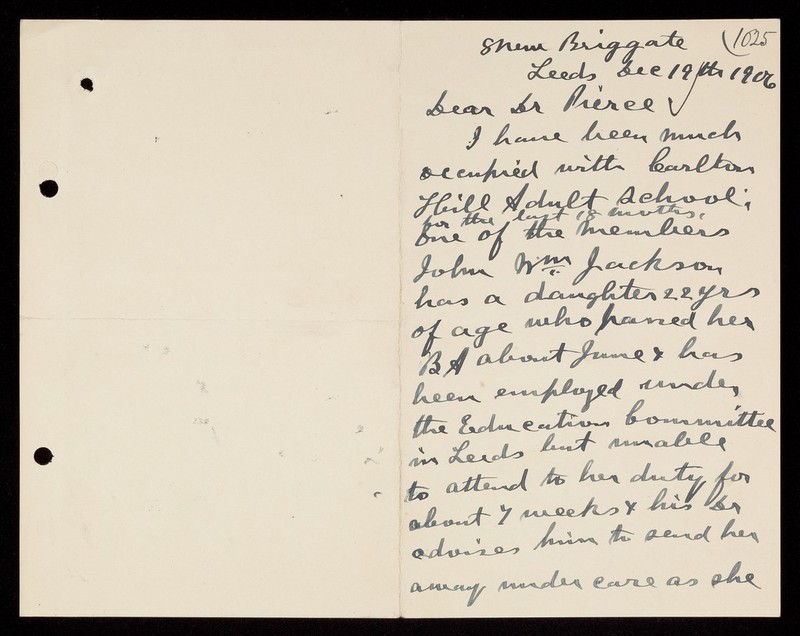 8 New Briggate (1025
Leeds Dec 19th 1906
Dear Dr Pierce
I have been much
occupied with Carlton
Hill Adult School;
for the last 18 months,
One of the Members
John Wm Jackson
has a daughter 22 yrs
of age who passed her
BA about June & has
been employed under
the Education Committee
in Leeds but unable
to attend to her duty for
about 7 weeks & his Dr
advises him to send her
away under care as she